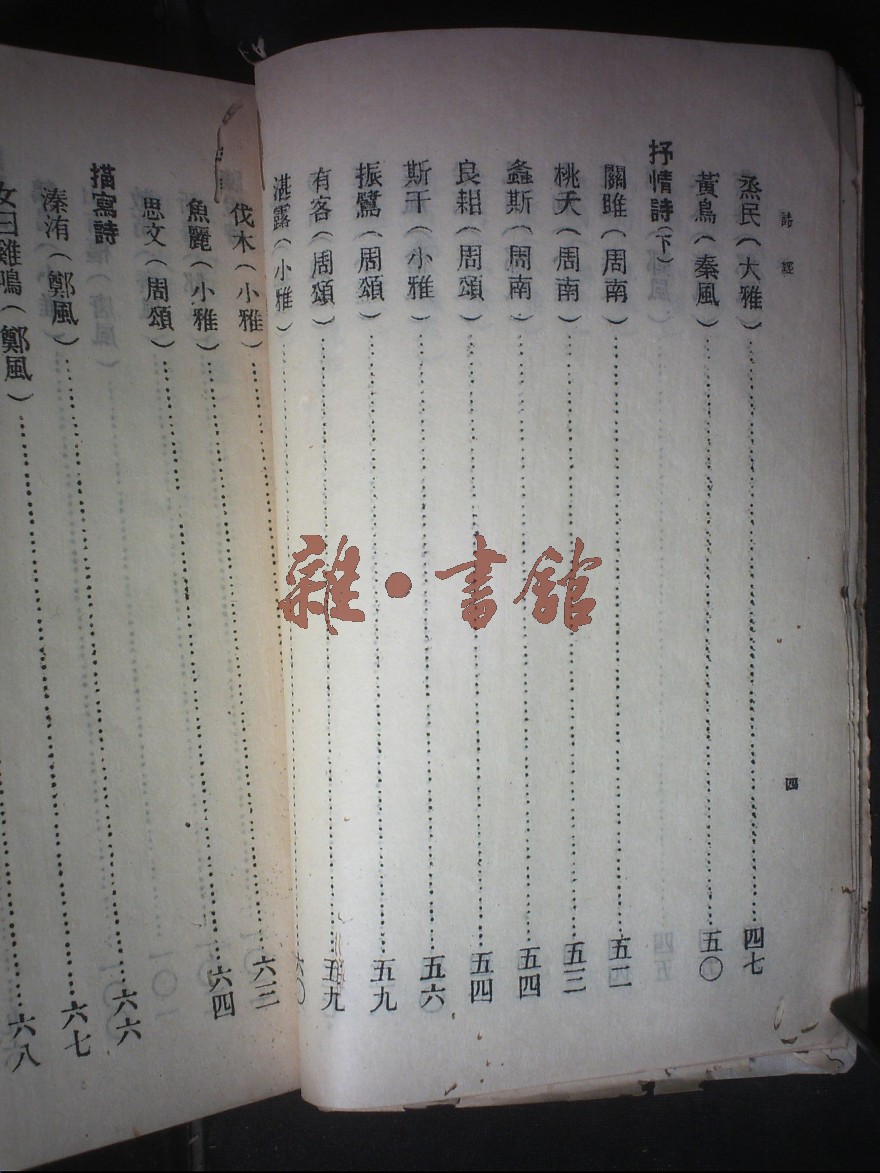 詩經
四
烝民(大雅)…………四七
黃鳥(秦風)…………五〇
抒情詩(下)
關雎(周南)…………五二
桃夭(周南)…………五三
螽斯(周南)…………五四
良耜(周頌)…………五四
斯干(小雅)…………五六
振鷺(周頌)…………五九
有客(周頌)…………五九
湛露(小雅)…………六〇
伐木(小雅)…………六三
魚麗(小雅)…………六四
思文(周頌)…………六六
描寫詩
溱洧(鄭風)…………六七
女曰雞鳴(鄭風)…………六八
雜•書館